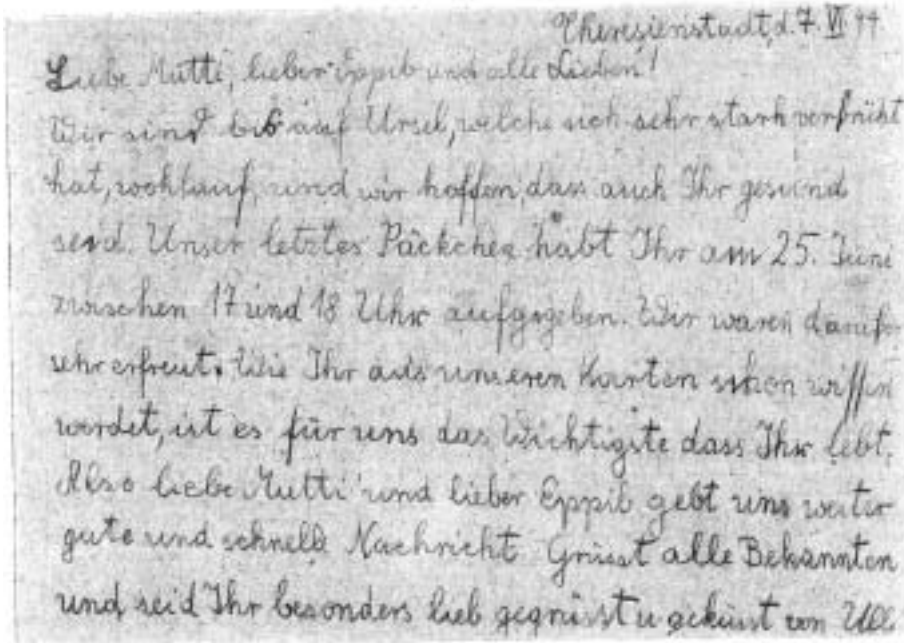 Theresienstadt, d. 7. VI 44
Liebe Mutti, lieber Eppib und alle Lieben!
Wir sind bis auf Ursel, welche sich sehr stark verbrüht
hat, wohlauf, und wir hoffen, dass auch Ihr gesund
seid. Unser letztes Päckchen habt Ihr am 25. Juni
zwischen 17 und 18 Uhr aufgegeben. Wir waren darüber
sehr erfreut. Wie Ihr aus unseren Karten schon wissen
werdet, ist es für uns das Wichtigste dass Ihr lebt.
Also liebe Mutti und lieber Eppib gebt uns weiter
gute und schnelle Nachricht Grüsst alle Bekannten
und seid Ihr besonders lieb gegrüsst u geküsst von